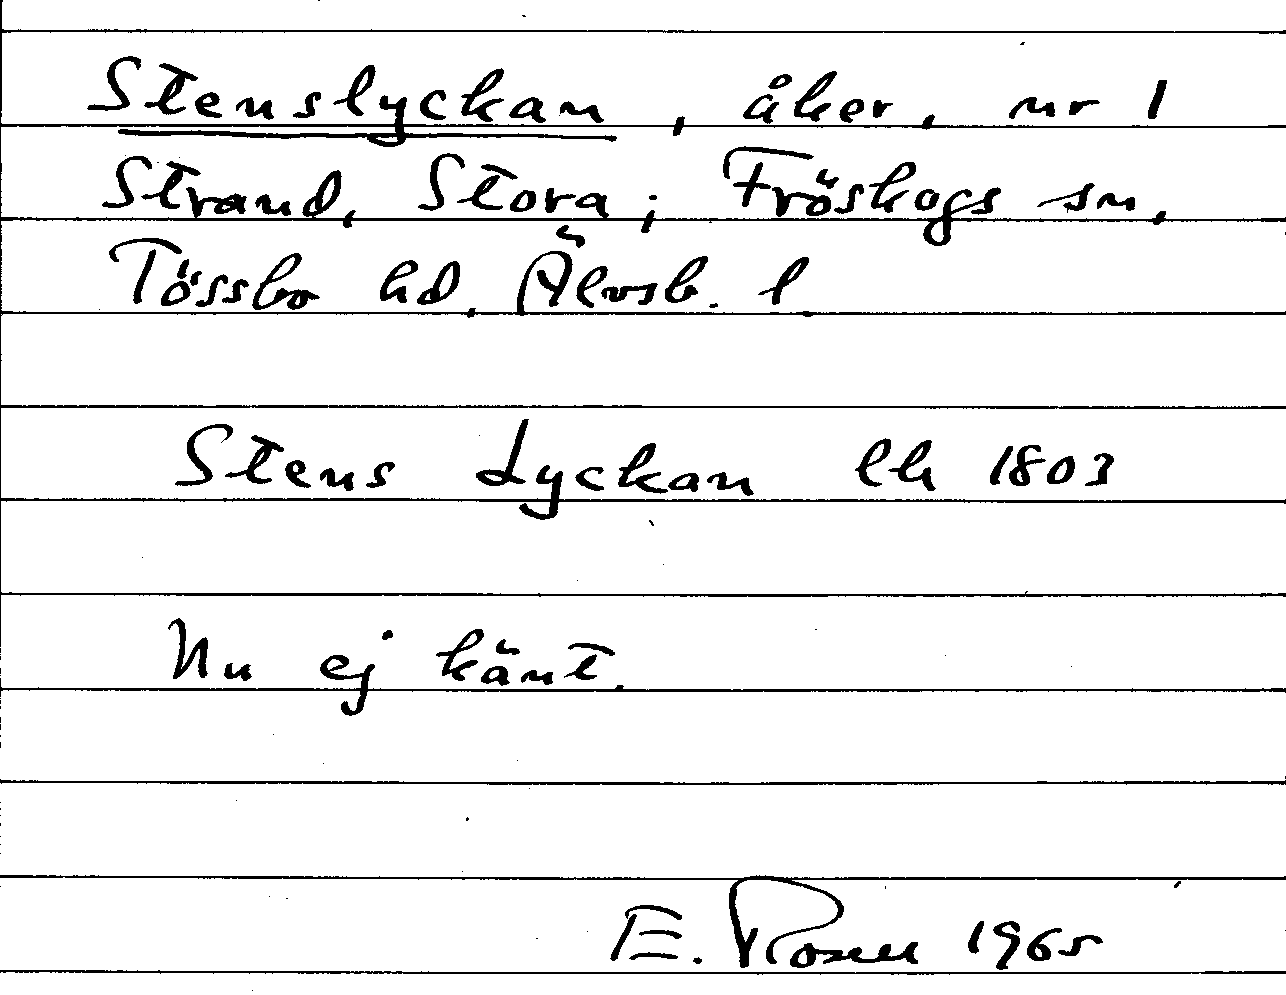 Stenslyckan, åker, nr 1
Strand, Stora; Fröskogs sn,
Tössbo hd, Älvsb. l.
Stens Lyckan lh 1803
Nu ej känt.
E. Rosen 1965